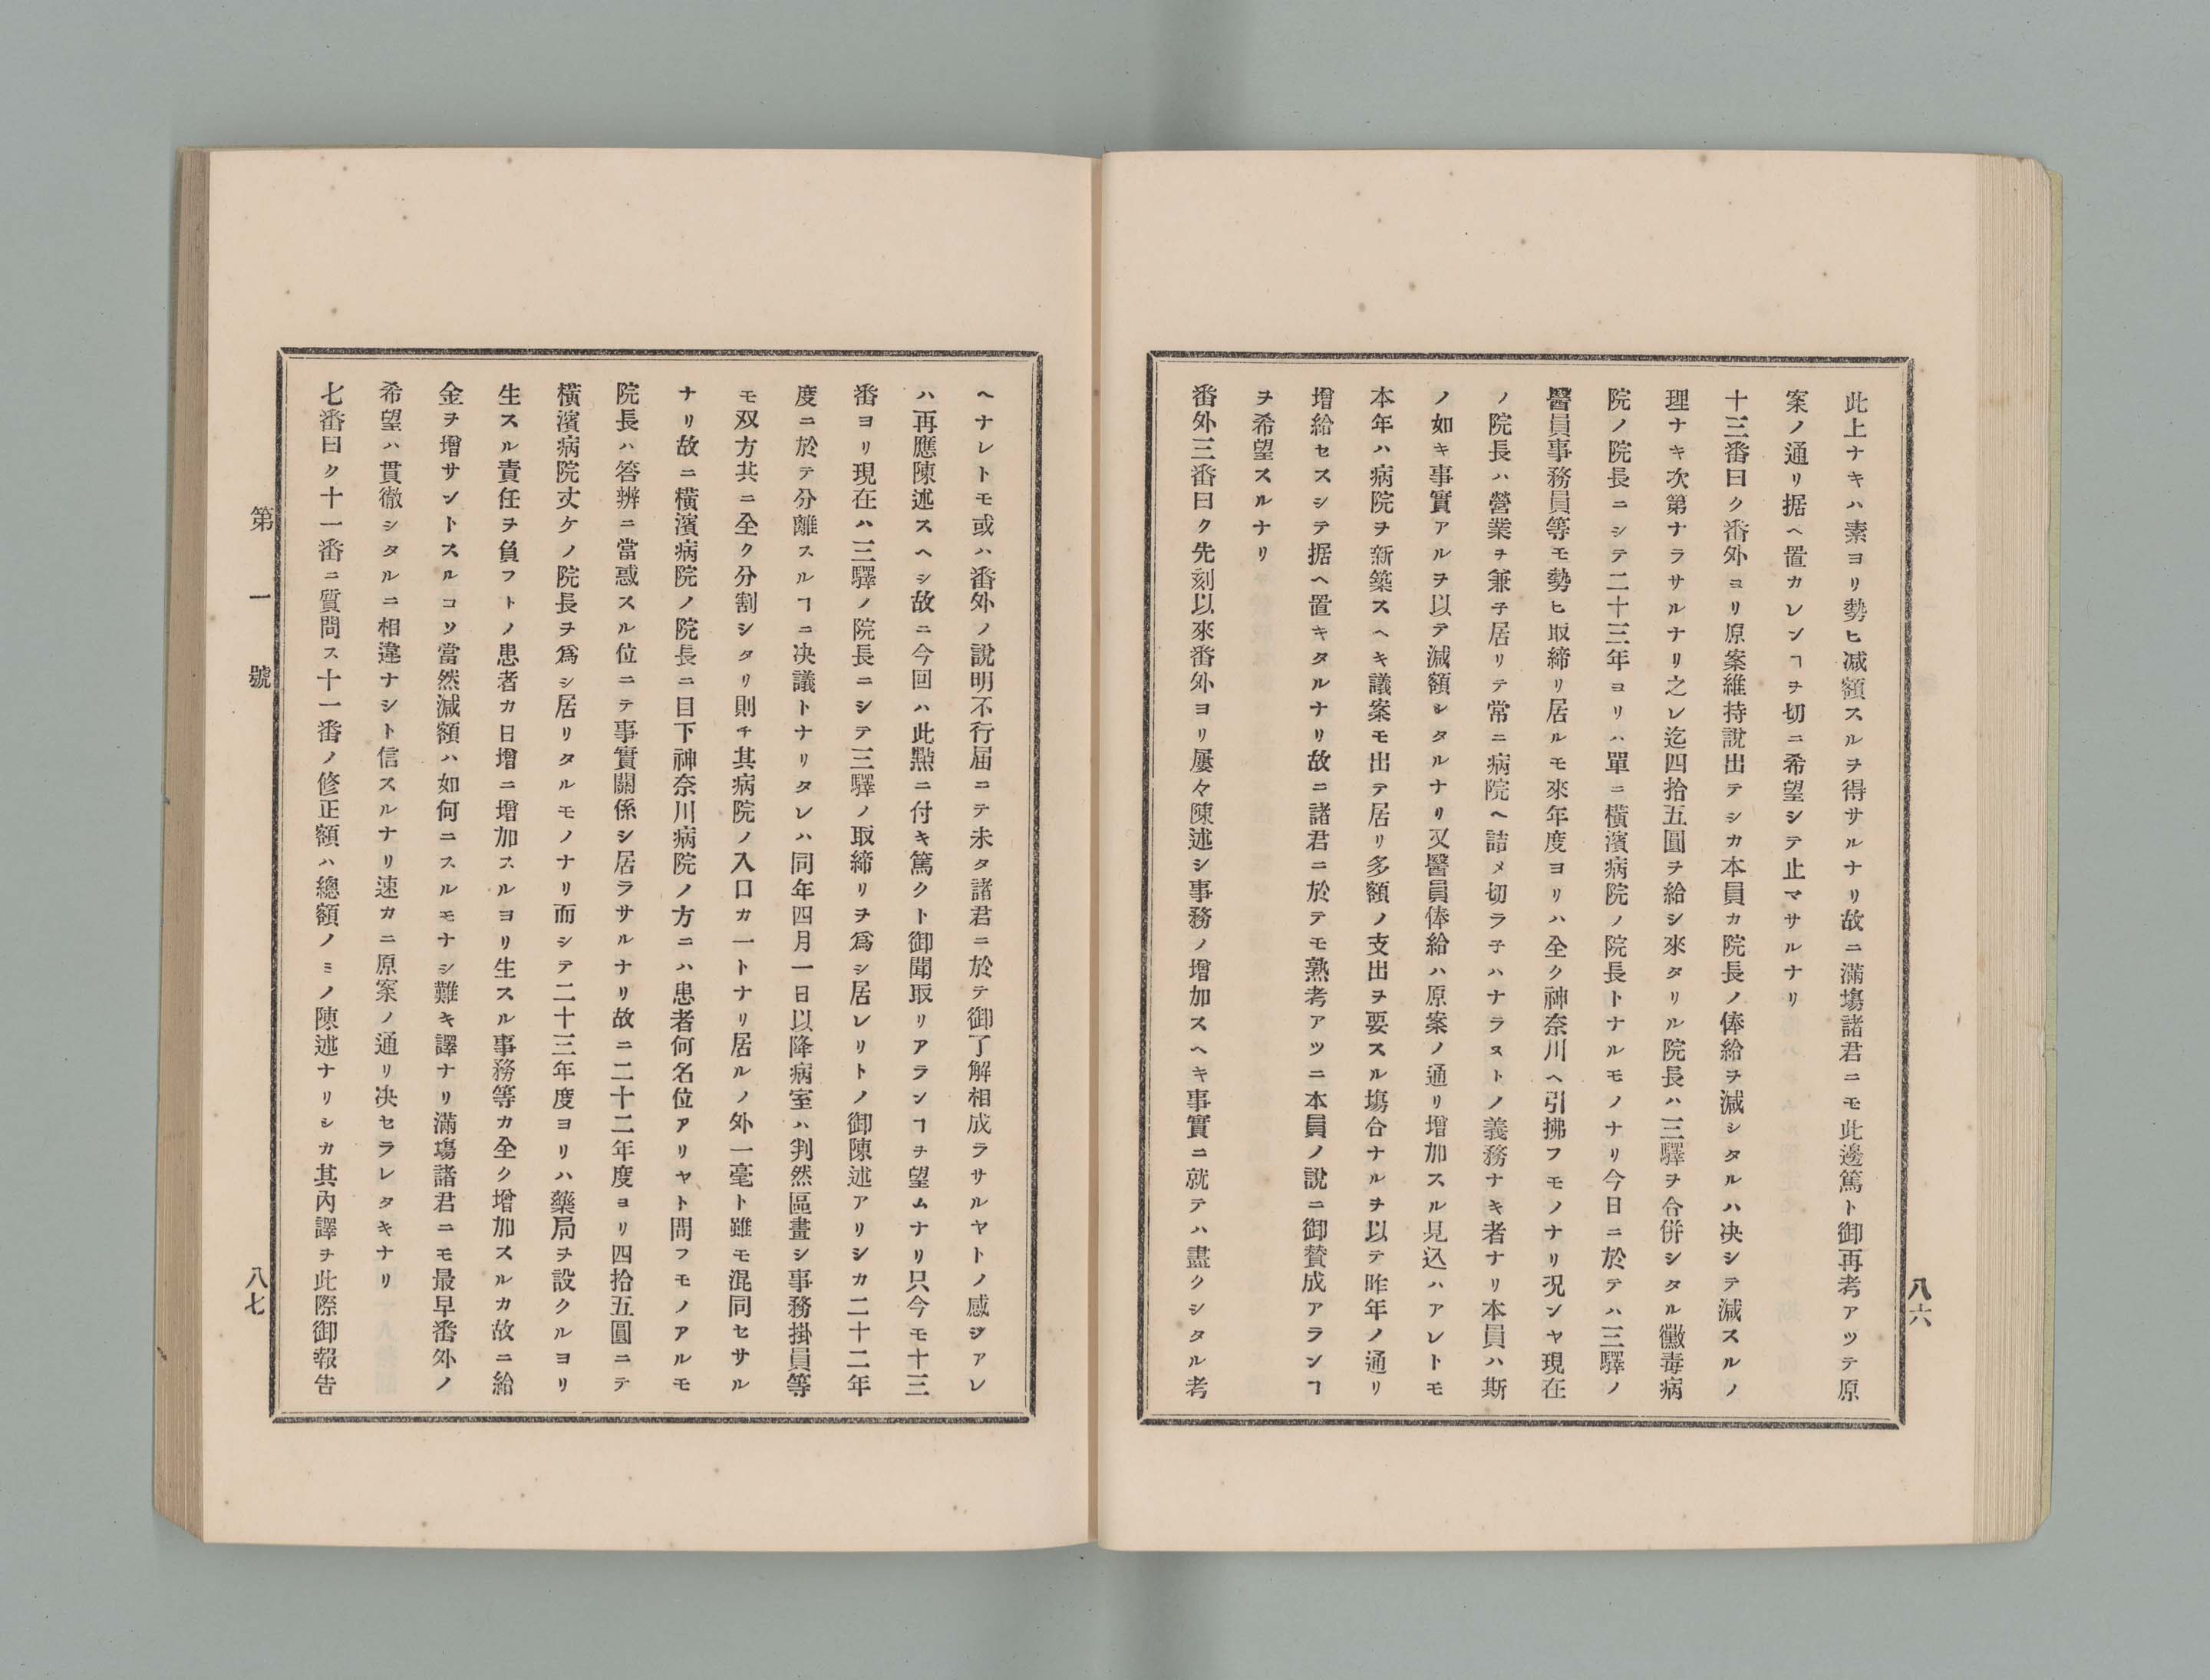 八六
此上ナキハ素ヨリ勢ヒ减額スルヲ得サルナリ故ニ滿塲諸君ニモ此邊篤ト御再考アツテ原
案ノ通リ据ヘ置カレンヿヲ切ニ希望シテ止マサルナリ
十三番曰ク番外ヨリ原案維持說出テシカ本員カ院長ノ俸給ヲ减シタルハ决シテ减スルノ
理ナキ次第ナラサルナリ之レ迄四拾五圓ヲ給シ來タリル院長ハ三驛ヲ合併シタル黴毒病
院ノ院長ニシテ二十三年ヨリハ單ニ橫濱病院ノ院長トナルモノナリ今日ニ於テハ三驛ノ
醫員事務員等モ勢ヒ取締リ居ルモ來年度ヨリハ全ク神奈川ヘ引拂フモノナリ况ンヤ現在
ノ院長ハ營業ヲ兼子居リテ常ニ病院ヘ詰メ切ラ子ハナラヌトノ義務ナキ者ナリ本員ハ斯
ノ如キ事實アルヲ以テ减額シタルナリ又醫員俸給ハ原案ノ通リ增加スル見込ハアレトモ
本年ハ病院ヲ新築スヘキ議案モ出テ居リ多額ノ支出ヲ要スル塲合ナルヲ以テ昨年ノ通リ
增給セスシテ据ヘ置キタルナリ故ニ諸君ニ於テモ熟考アツニ本員ノ說ニ御贊成アランヿ
ヲ希望スルナリ
番外三番曰ク先刻以來番外ヨリ屢々陳述シ事務ノ增加スヘキ事實ニ就テハ盡クシタル考
ヘナレトモ或ハ番外ノ說明不行届ニテ未タ諸君ニ於テ御了解相成ラサルヤトノ感ヲアレ
ハ再應陳述スヘシ故ニ今回ハ此點ニ付キ篤クト御聞取リアランヿヲ望ムナリ只今モ十三
番ヨリ現在ハ三驛ノ院長ニシテ三驛ノ取締リヲ爲シ居レリトノ御陳述アリシカ二十二年
度ニ於テ分離スルヿニ决議トナリタレハ同年四月一日以降病室ハ判然區畫シ事務掛員等
モ双方共ニ全ク分割シタリ則チ其病院ノ入口カ一トナリ居ルノ外一毫ト雖モ混同セサル
ナリ故ニ橫濱病院ノ院長ニ目下神奈川病院ノ方ニハ患者何名位アリヤト問フモノアルモ
院長ハ答辨ニ當惑スル位ニテ事實關係シ居ラサルナリ故ニ二十二年度ヨリ四拾五圓ニテ
橫濱病院丈ケノ院長ヲ爲シ居リタルモノナリ而シテ二十三年度ヨリハ藥局ヲ設クルヨリ
生スル責任ヲ負フトノ患者カ日增ニ增加スルヨリ生スル事務等カ全ク增加スルカ故ニ給
金ヲ增サントスルコソ當然减額ハ如何ニスルモナシ難キ譯ナリ滿塲諸君ニモ最早番外ノ
希望ハ貫徹シタルニ相違ナシト信スルナリ速カニ原案ノ通リ决セラレタキナリ
七番曰ク十一番ニ質問ス十一番ノ修正額ハ總額ノミノ陳述ナリシカ其內譯ヲ此際御報告
第一號
八七